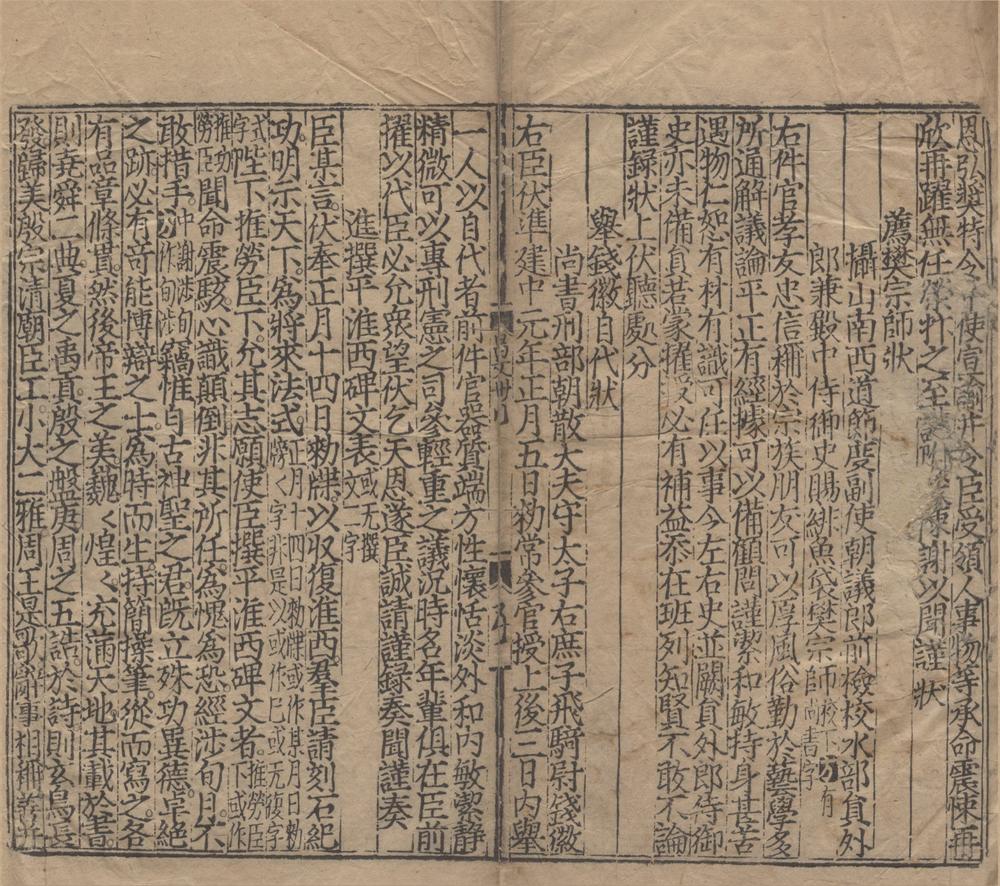 恩弘奬特令中使宣諭并令臣受領人事物等承命震悚再
欣再躍無任榮抃之至謹附狀陳謝以聞謹狀
薦樊宗師狀
攝山南西道節度副使朝議郎前檢校水部貟外
郎兼殿中侍御史賜緋魚袋樊宗師校下方有尚書字
右件官孝友忠信稱於宗族朋友可以厚風俗勤於藝學多
所通解議論平正有經據可以備顧問謹潔和敏持身甚苦
遇物仁恕有材有識可任以事今左右史並闕貟外郎侍御
史亦未備貟若蒙擢授必有補益忝在班列知賢不敢不論
謹録狀上伏聽處分
舉錢徽自代狀
尚書刑部朝散大夫守太子右庶子飛騎尉錢徽
右臣伏進建中元年正月五日勑常參官授上後三日内舉
一人以自代者前件官器質端方性懷恬淡外和内敏潔静
精微可以專刑憲之司參輕重之議況時名年輩俱在臣前
擢以代臣必允衆望伏乞天恩遂臣誠請謹録奏聞謹奏
進撰平淮西碑文表或无撰文二字
臣某言伏奉正月十四日勑牒以収復淮西羣臣請刻石紀
功明示天下為將來法式正月十四日勑牒或作某月日勑牓牓字非是以或作巳或无復字式
字陛下推勞臣下允其志願使臣撰平淮西碑文者推勞臣下或作
推功勞臣聞命震駭心識顛倒非其所任為愧為恐經涉旬月不
敢措手方作旬涉沖謝涉旬竊惟自古神聖之君旣立殊功異德卓絶
之跡必有竒能博辯之士為時而生持簡操筆從而寫之各
有品章條貫然後帝王之美巍〻煌〻充滿天地其載於書
則堯舜二典夏之禹貢殷之盤庚周之五誥於詩則玄鳥長
發歸美殷宗清廟臣工小大二雅周王是歌辭事相稱善并